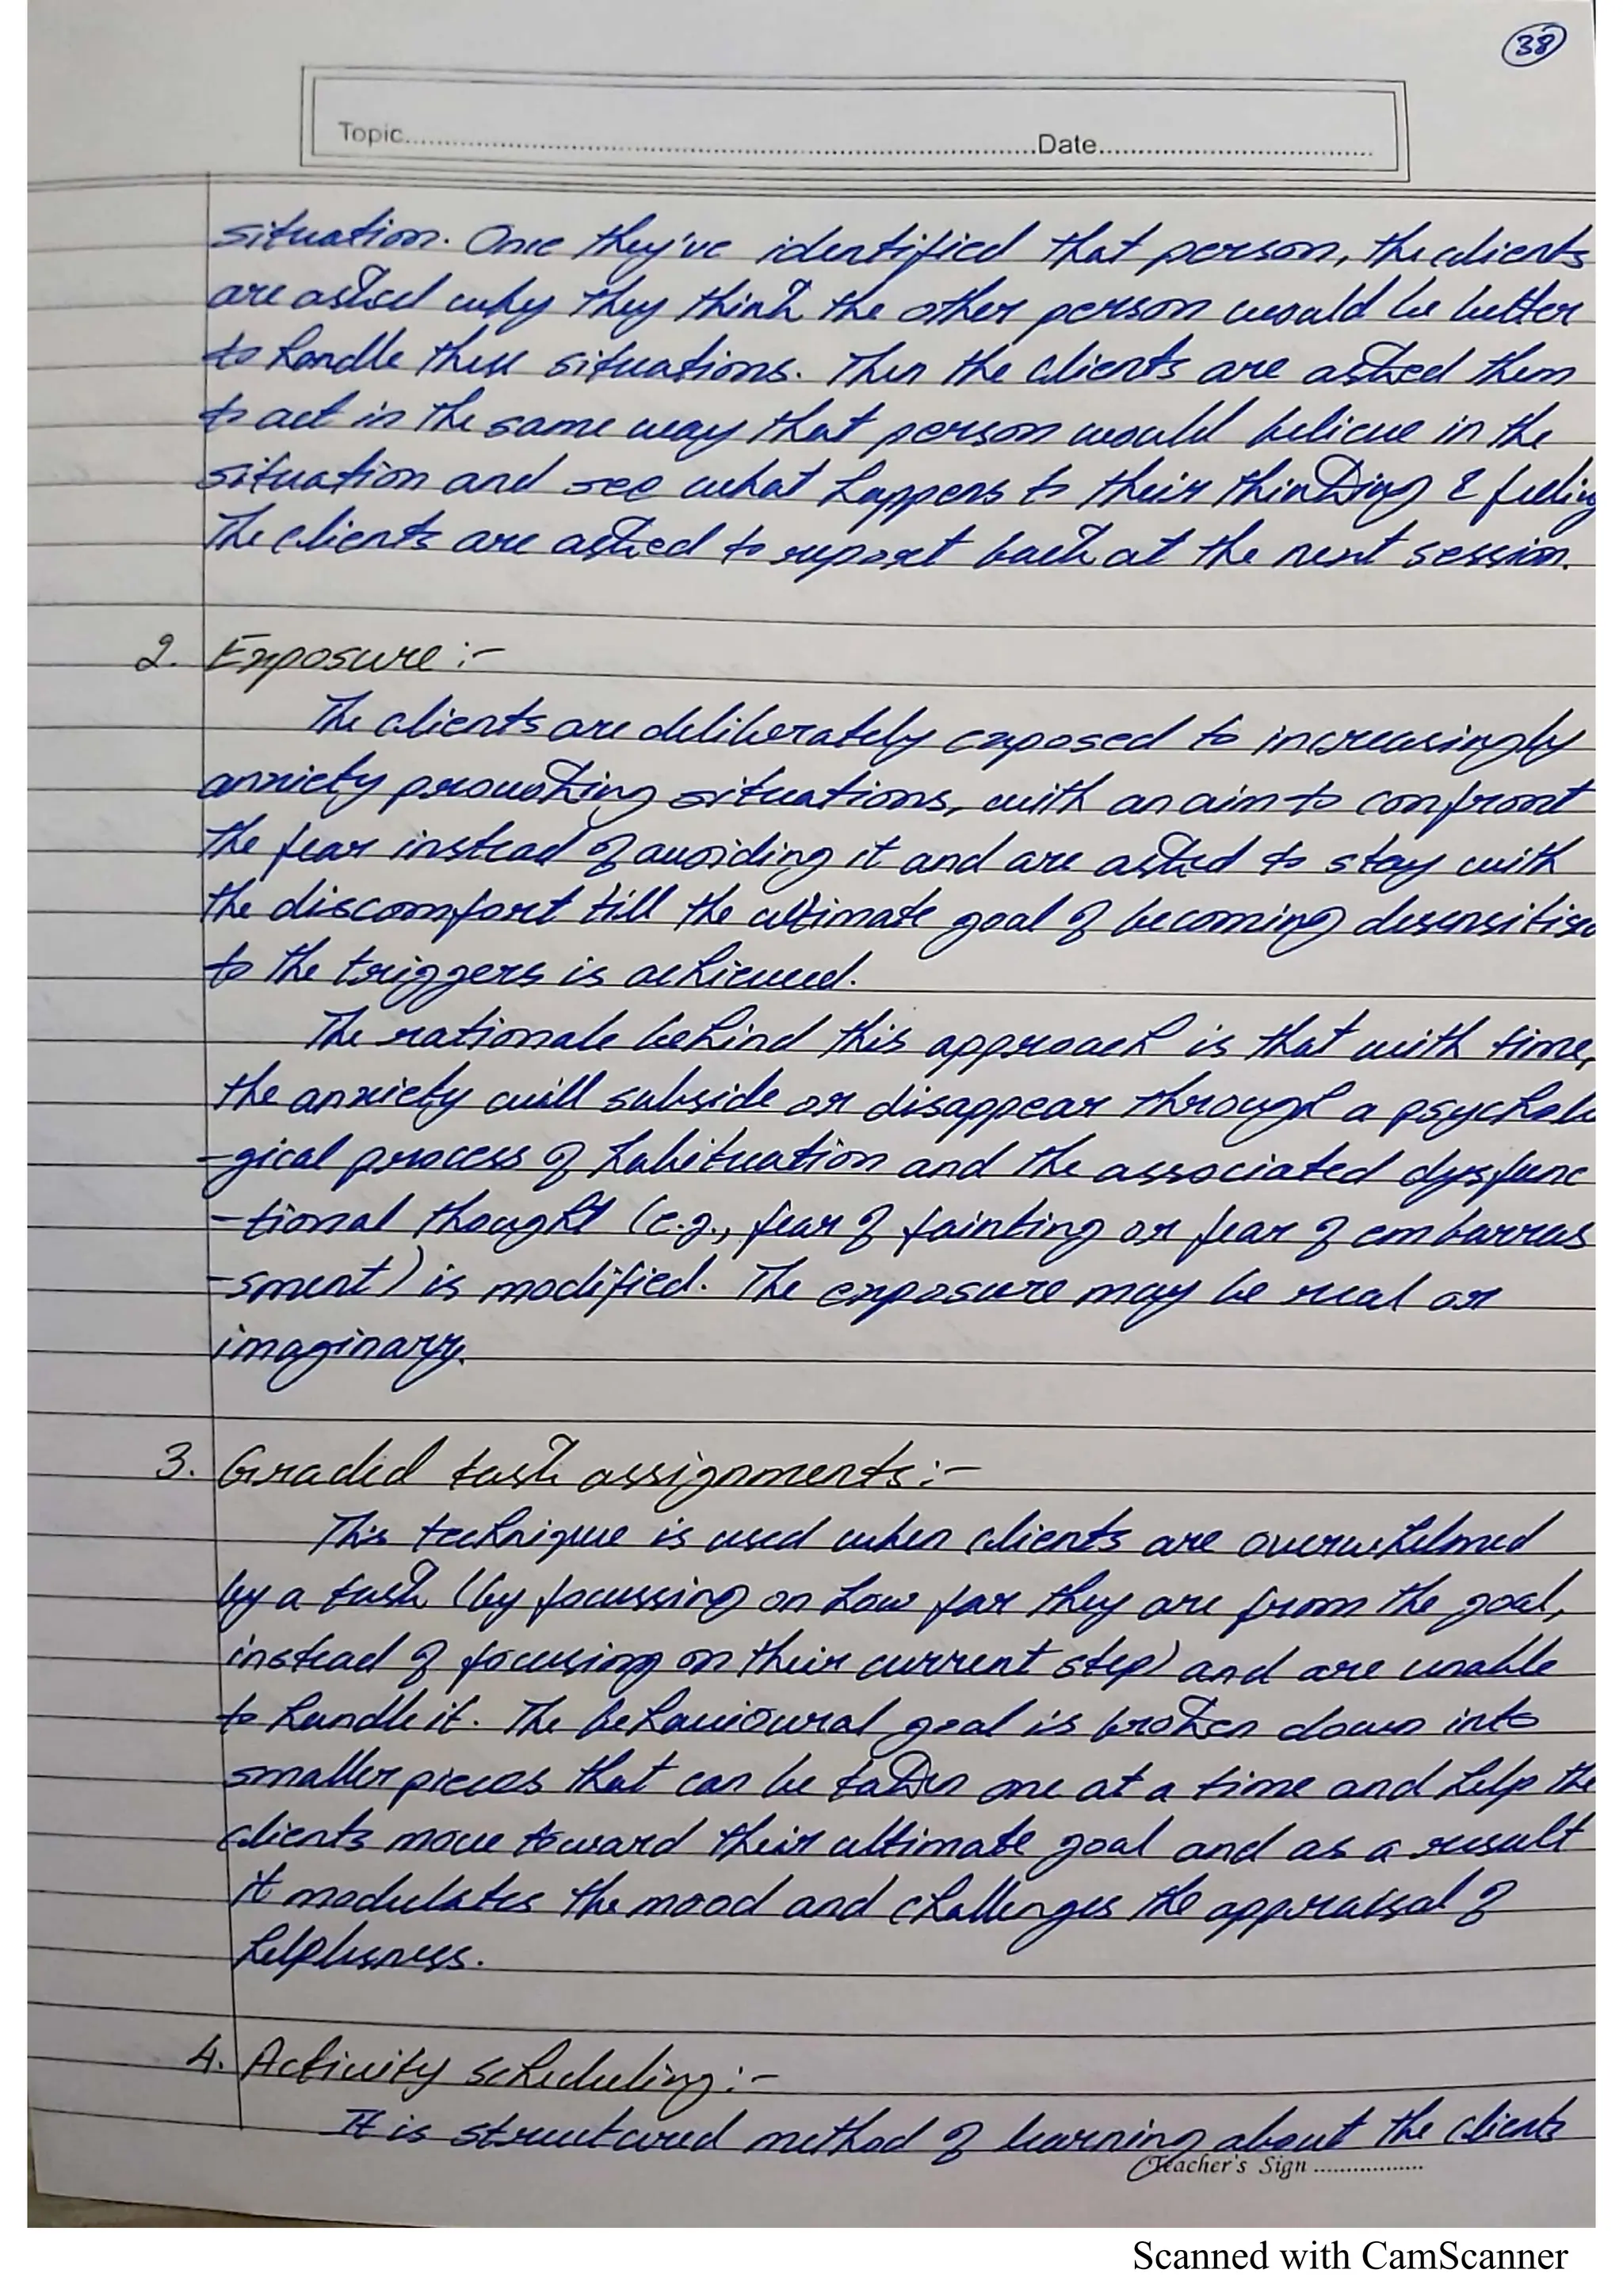 38
Topic..............................Date..............................
situation. Once they've identified that person, the clients
are asked why they think the other person would be better
to handle these situations. Then the clients are asked them
to act in the same way that person would believe in the
situation and see what happens to their thinking & feeling
The clients are asked to report back at the next session.
2. Exposure :-
The clients are deliberately exposed to increasingly
anxiety provoking situations, with an aim to confront
the fear instead of avoiding it and are asked to stay with
the discomfort till the ultimate goal of becoming desensitise
to the triggers is achieved.
The rationale behind this approach is that with time,
the anxiety will subside or disappear through a psycholo
-gical process of habituation and the associated dysfunc
-tional thought (e.g., fear of fainting or fear of embarras
-sment) is modified. The exposure may be real or
imaginary.
3. Graded task assignments :-
This technique is used when clients are overwhelmed
by a task (by focussing on how far they are from the goal,
instead of focusing on their current step) and are unable
to handle it. The behavioural goal is broken down into
smaller pieces that can be taken one at a time and help the
clients move toward their ultimate goal and as a result
it modulates the mood and challenges the appraisal of
helplesness.
4. Activity scheduling :-
It is structured method of learning about the clients
Teacher's Sign ..................
Scanned with CamScanner